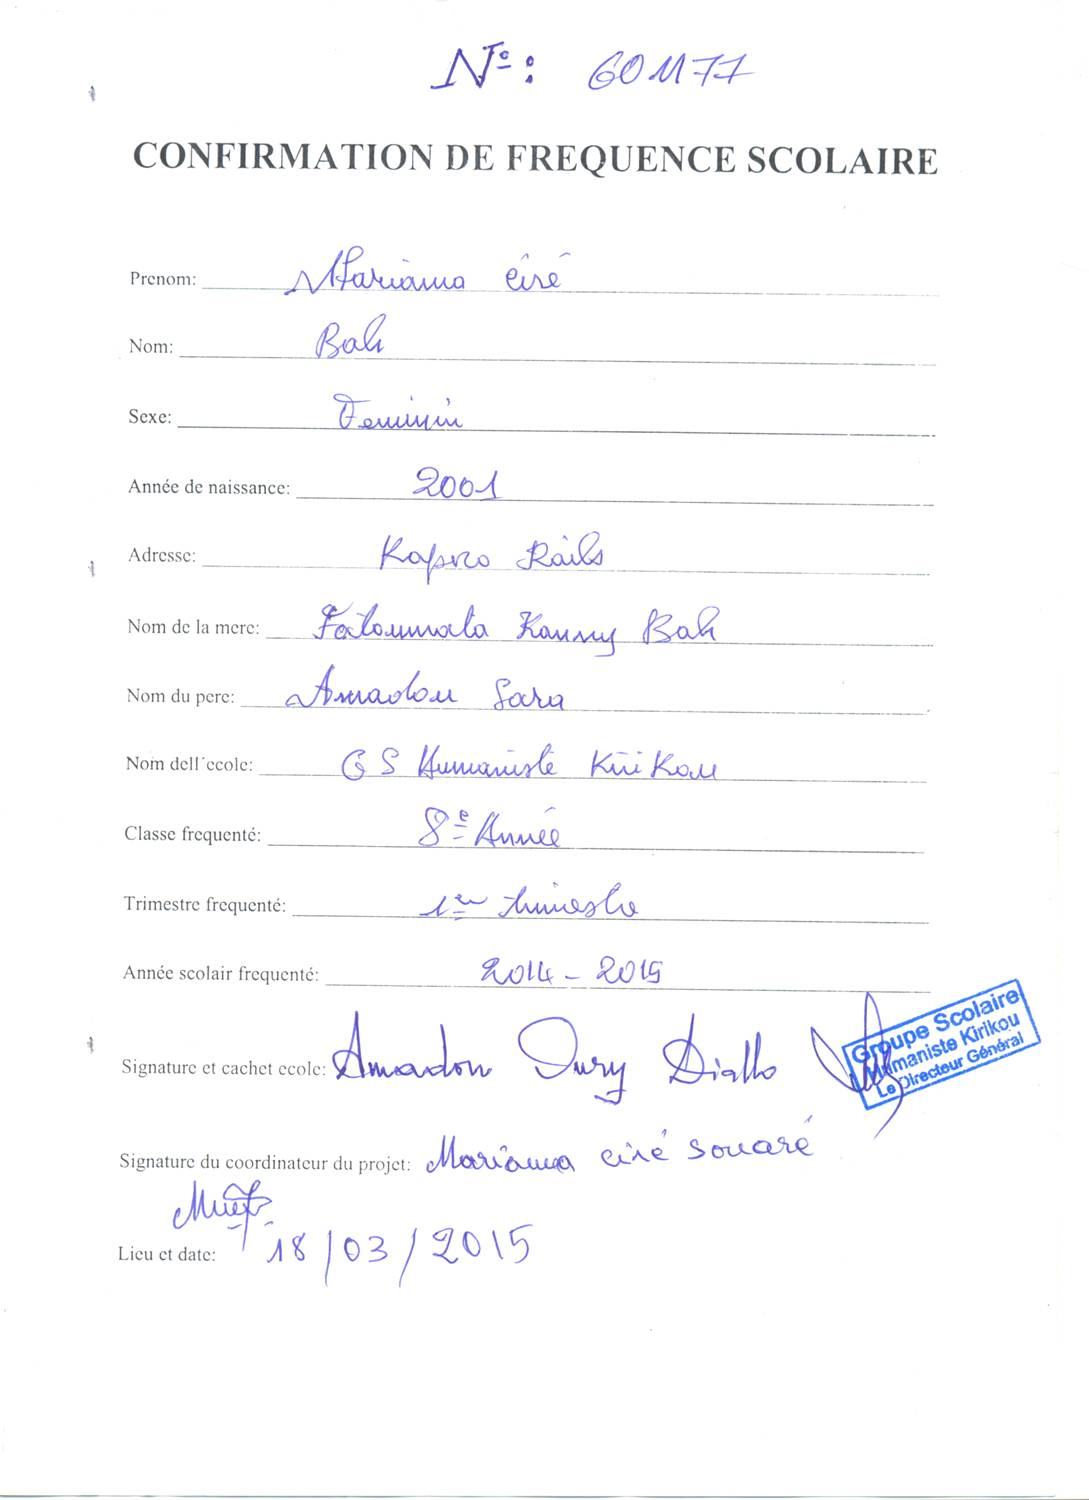 N°: 601177
CONFIRMATION DE FREQUENCE SCOLAIRE
Prenom: Mariama Ciré
Nom: Bah
Sexe: Feminin
Année de naissance: 2001
Adresse: Kaporo Rails
Nom de la mere: Fatoumata Kanny Bah
Nom du pere: Amadou Sara
Nom dell´ecole: G S Humaniste Kirikou
Classe frequenté: 8e Année
Trimestre frequenté: 1er trimestre
Année scolair frequenté: 2014 - 2015
Groupe Scolaire
Humaniste Kirikou
Le Directeur Général
Signature et cachet ecole: Amadou Oury Diallo
Signature du coordinateur du projet: Mariama ciré souaré
Lieu et date: 18/03/2015